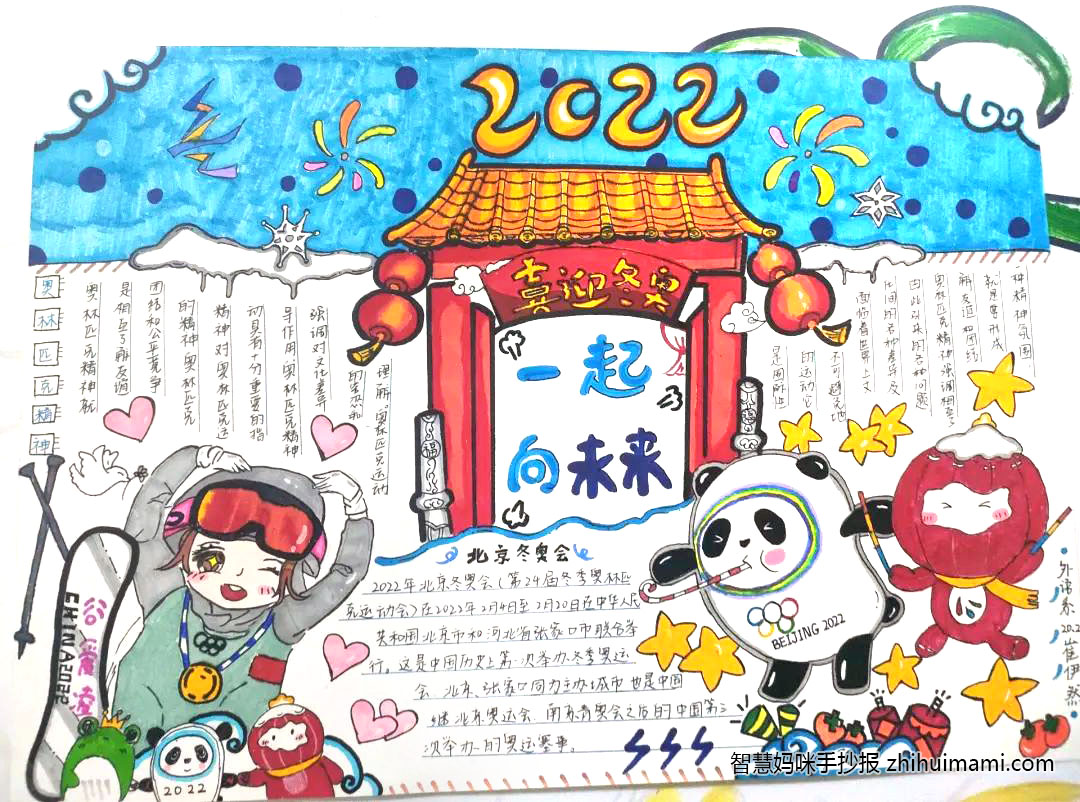 2022
喜迎冬奥
一起
向未来
奥
林
匹
克
精
神
奥林匹克精神就
是相互了解友谊
团结和公平竞争
的精神奥林匹克
精神对奥林匹克运
动具有十分重要的指
导作用奥林匹克精神
强调对文化差异
的容忍和
理解奥林匹克运动
一种精神氛围
就愿意形成
解友谊和团结
奥林匹克精神强调相互了
福
北京冬奥会
2022年北京冬奥会(第24届冬季奥林匹
克运动会)在2022年2月4日至2月20日在中华人民
共和国北京市和河北省张家口市联合举
行。这是中国历史上第一次举办冬季奥运
会 北京、张家口同为主办城市 也是中国
继北京奥运会 南京青奥会之后的中国第三
次举办的奥运赛事。
谷爱凌
CHINA2022
2022
BEIJING 2022
外语系
崔伊然
智慧妈咪手抄报 zhihuimami.com